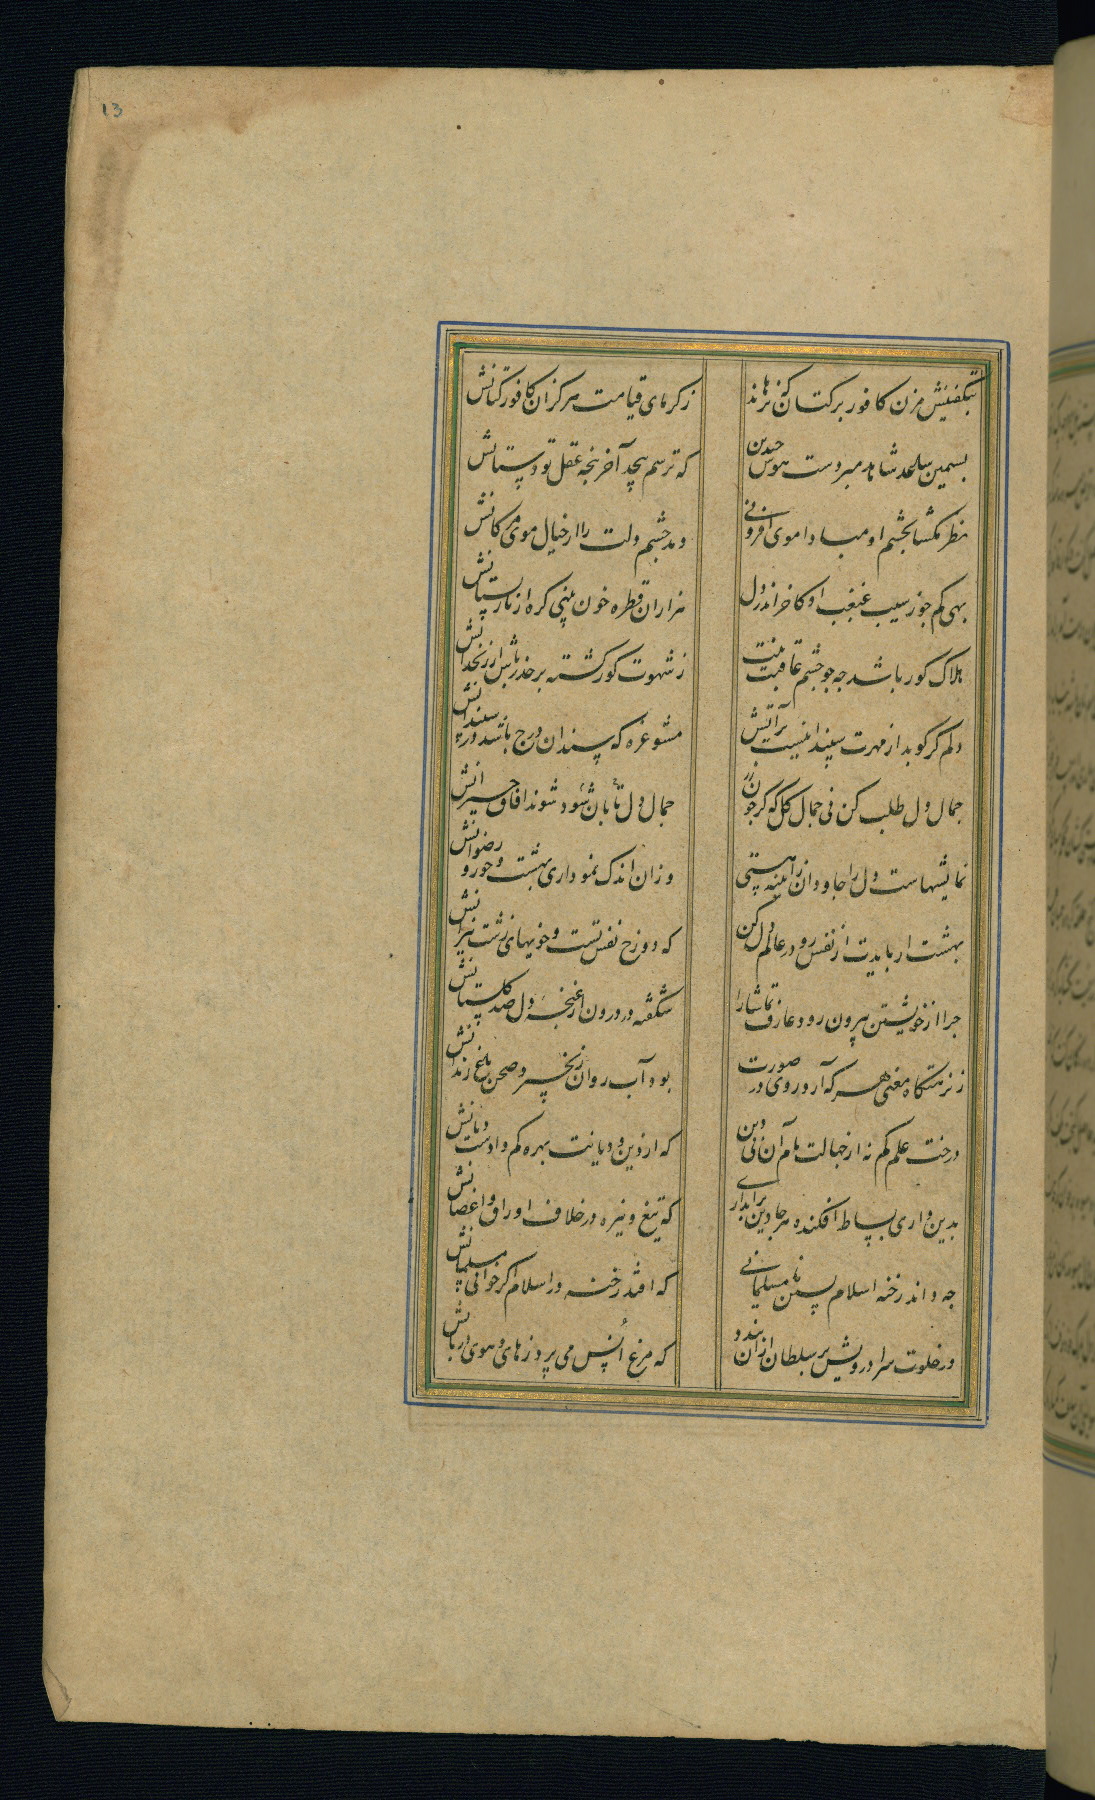 13
بتکفینش مزن کافور بر کتان که نرهاند
ز کرمای قیامت مر کزان کافور کتانش
بسیمین ساعد شاهد مبر دست هوس چندین
که ترسم پیچد آخر پنجه عقل تو دستانش
نظر مکشا بچشم او مبادا موی افزونی
دمد چشم دلت را از خیال موی مژکانش
بهی کم جو ز سیب غبغب او کاخر اندر دل
هزاران قطره خون بینی کره از نار پستانش
هلاک کور باشد چه چو چشم عاقبت بینت
ز شهوت کور کشته بر حذر باش از زنخدانش
دلم کر کوید از مهرت سپندانیست بر آتش
مشو غره که سندان درج باشد در سپندانش
جمال دل طلب کن نی جمال کل که کر چون زر
جمال دل تابان شود شوند افاق حیرانش
نمایشهاست دل را جاودان زایینه هستی
وزان اندک نموداری بهشت و حور و رضوانش
بهشت ار بایدت از نفس رو در عالم دل کن
که دوزخ نفس تست و خویهای زشت نیرانش
چرا از خویشتن بیرون رود عارف تماشا را
شکفته در درون از غنچه دل صد کلستانش
ز نزهتکاه معنی هر که آرد روی در صورت
بود آب روان زنجیر و صحن باغ زندانش
درخت علم کم نه از جهالت نام آن بی دین
که از دین و دیانت بهره کم دادست دیانش
بدین داری بساط افکنده هر جا دین براندازی
که تیغ و نیزه در خلاف اوراق و اغصانش
چه داند رخنه اسلام بستن نامسلمانی
که افتد رخنه در اسلام اکر خوانی مسلمانش
در خلوت سرا درویش بر سلطان ازان بندد
که مرغ انس می پرد ز های و هوی دربانش